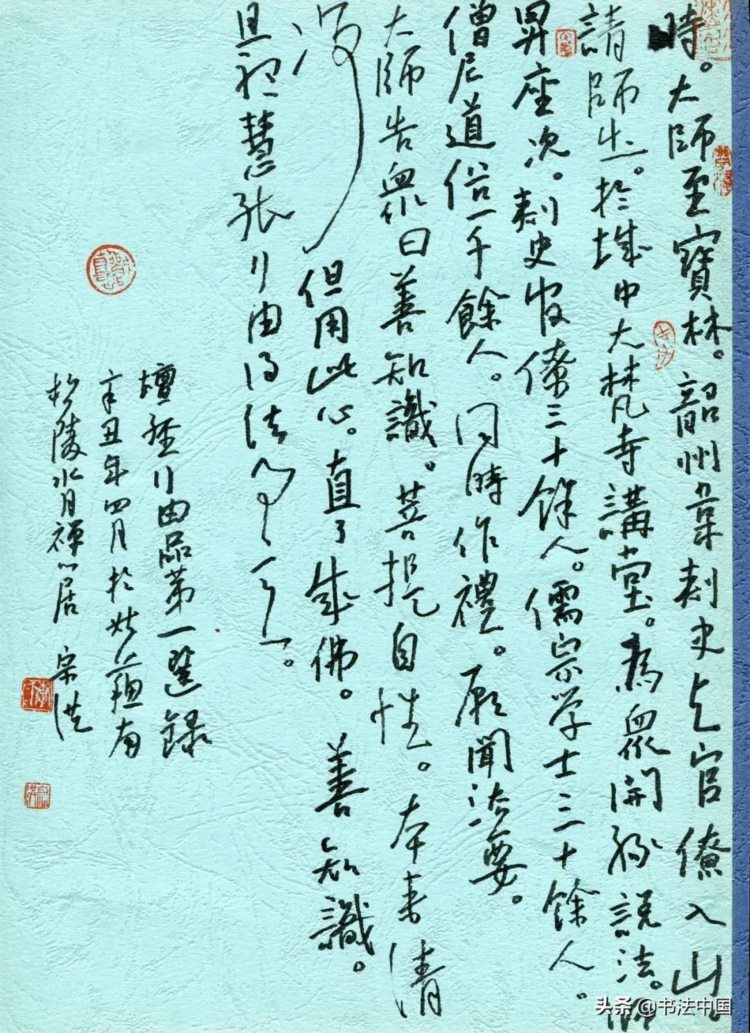 時。大師至寶林。韶州韋刺史與官僚入山。
請師出。於城中大梵寺講堂。為眾開緣說法。師
昇座次。刺史官僚三十餘人。儒宗学士三十餘人。
僧尼道俗一千餘人。同時作禮。願聞法要。
大師告眾曰善知識。菩提自性。本来清
淨 但用此心。直了成佛。善知識。
且聽慧能行由得法事意。
壇經行由品第一選錄
辛丑年四月於姑蘇南
松陵水月禅居 宗洪
头条 @书法中国